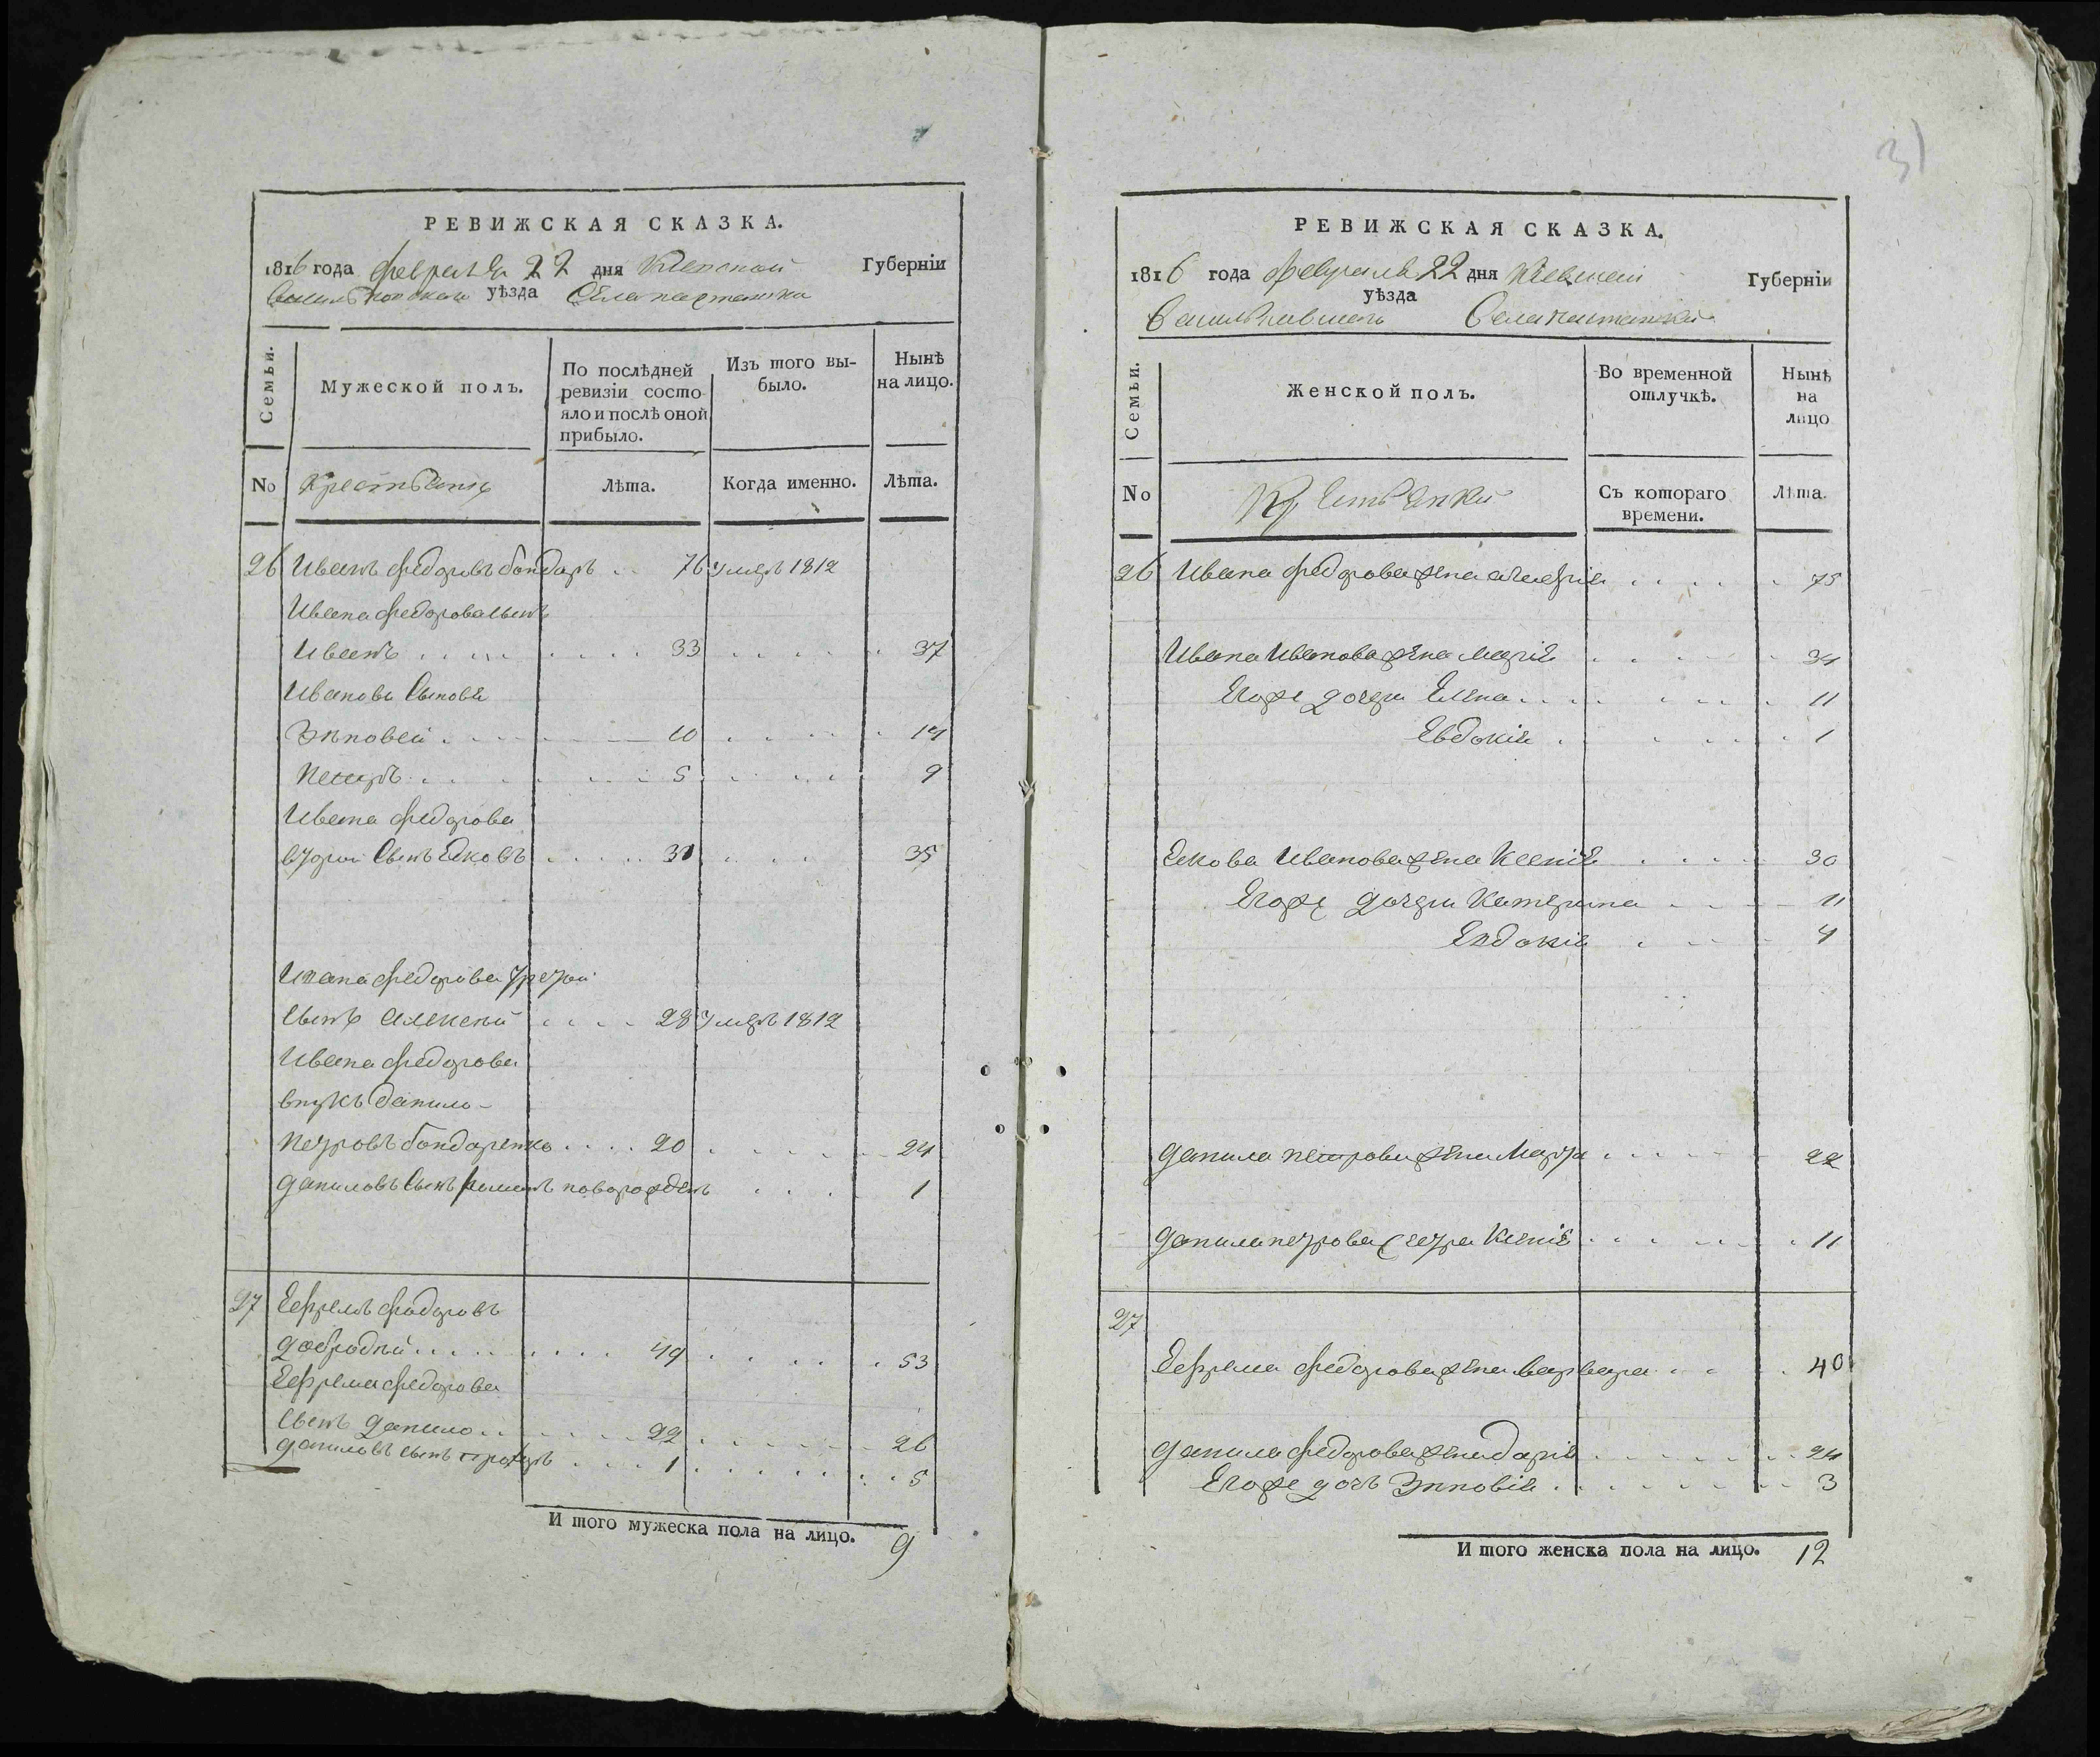 РЕВИЖСКАЯ СКАЗКА.
1816 года февраля 22 дня Киевской Губерніи
Васильковского уѣзда Села
Семьи.
Мужеской полъ.
По послѣдней ревизіи состояло и послѣ оной прибыло.
Изъ того выбыло.
Нынѣ на лицо.
No Крестьяне Лѣта. Когда именно. Лѣта.
26 Иванъ федоровъ бондаръ .. 76 умеръ 1812
Ивана федорова сынъ
Иванъ 33 37
Ивановы Сыновя
Зѣновей 10 14
Петръ 5 9
Ивана федорова
вторій Сынъ Яковъ 31 35
Ивана федорова третій
Сынъ Алексѣй 28 умеръ 1812
Ивана федорова
внукъ данило
петровъ бондаренко 20 24
даниловъ Сынъ новорожденъ 1
27 Ефремъ федоровъ
49 53
Ефрема федорова
Сынъ данило 22 26
даниловъ сынъ 1 5
И того мужеска пола на лицо. 9
31
РЕВИЖСКАЯ СКАЗКА.
1816 года февраля 22 дня Киевской Губерніи
уѣзда
Васильковского Села
Семьи.
Женской полъ.
Во временной отлучкѣ.
Нынѣ на лицо
No Крестьянки Съ котораго времени. Лѣта.
26 Ивана федорова жена 75
Ивана Иванова жена Марія 34
Егоже дочери Елена 11
Евдокія 1
Якова Иванова жена Ксенія 30
Егоже дочери Катерина 11
Евдокія 4
данила петрова жена Марфа 22
данила петрова Сестра Ксенія 11
27
Ефрема федорова жена варвара 40
данила федорова жена дарія 24
Егоже дочь Зѣновія 3
И того женска пола на лицо. 12